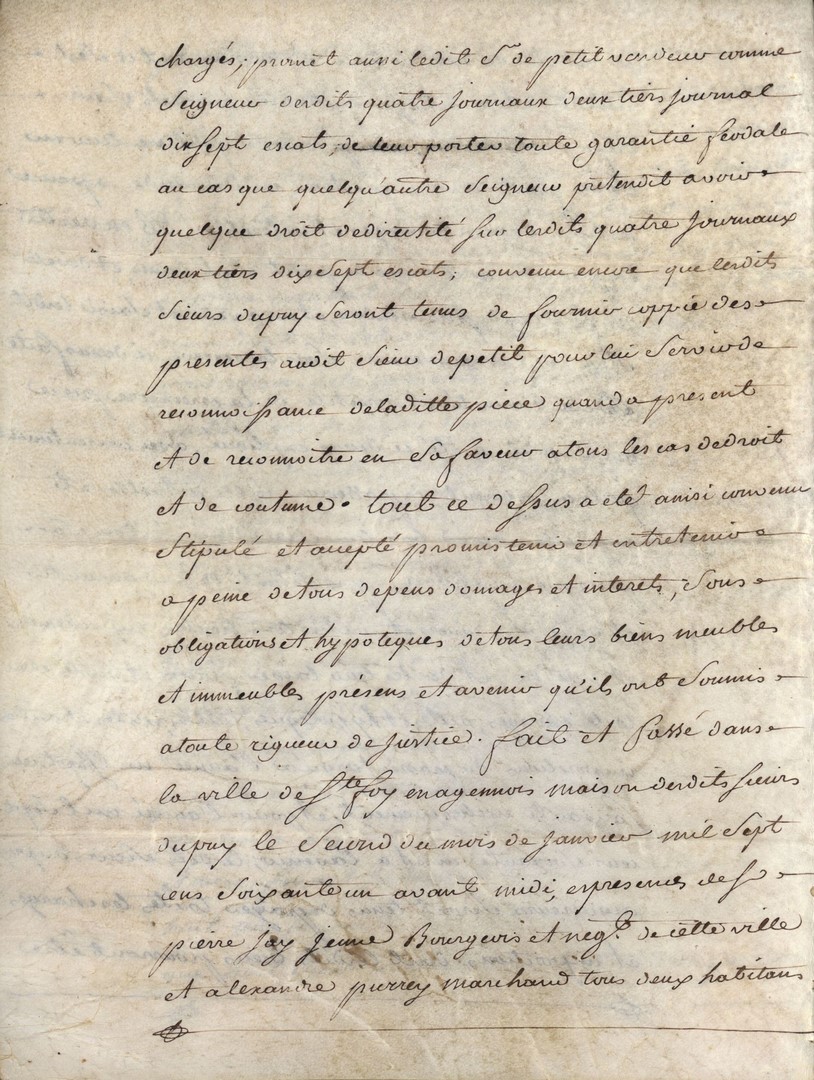 chargés; promet aussi ledit Sr. de petit vendeur comme
Seigneur desdits quatre journaux deux tiers journal
dixsept escats, de leur porter toute garantie feodale
au cas que quelqu'autre Seigneur prétendit avoir
quelque droit de directité sur lesdits quatre journaux
deux tiers dix sept escats; convenu encore que lesdits
Sieurs dupuy seront tenus de fournir coppie des
presentes audit Sieur de petit pour lui servir de
reconnoissance de laditte piece quand a present
et de reconnoitre en Sa faveur a tous les cas de droit
et de coutume. tout ce dessus a eté ainsi convenu
Stipulé et accepté promis tenir et entretenir
a peine de tous depens domages et interets, Sous
obligations et hypoteques de tous leurs biens meubles
et immeubles présens et avenir qu'ils ont Soumis
a toute rigueur de justice. fait et Passé dans
la ville de Ste foy en agennois maison desdits Sieurs
dupuy le Second du mois de janvier mil Sept
cens Soixante un avant midi, es presences de Sr
pierre jay jeune Bourgeois et negt. de cette ville
et alexandre marchand tous deux habitans